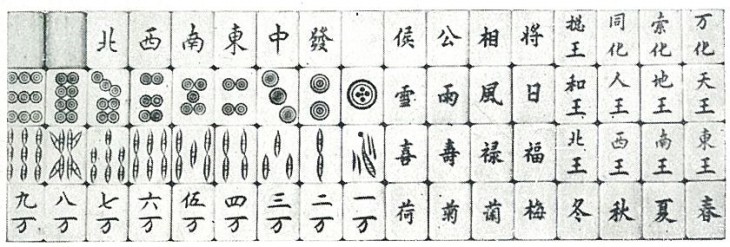 北 西 南 東 中 發 侯 公 相 将 摠王 同化 索化 万化
雪 雨 風 日 和王 人王 地王 天王
喜 壽 禄 福 北王 西王 南王 東王
九万 八万 七万 六万 伍万 四万 三万 二万 一万 荷 菊 蘭 梅 冬 秋 夏 春